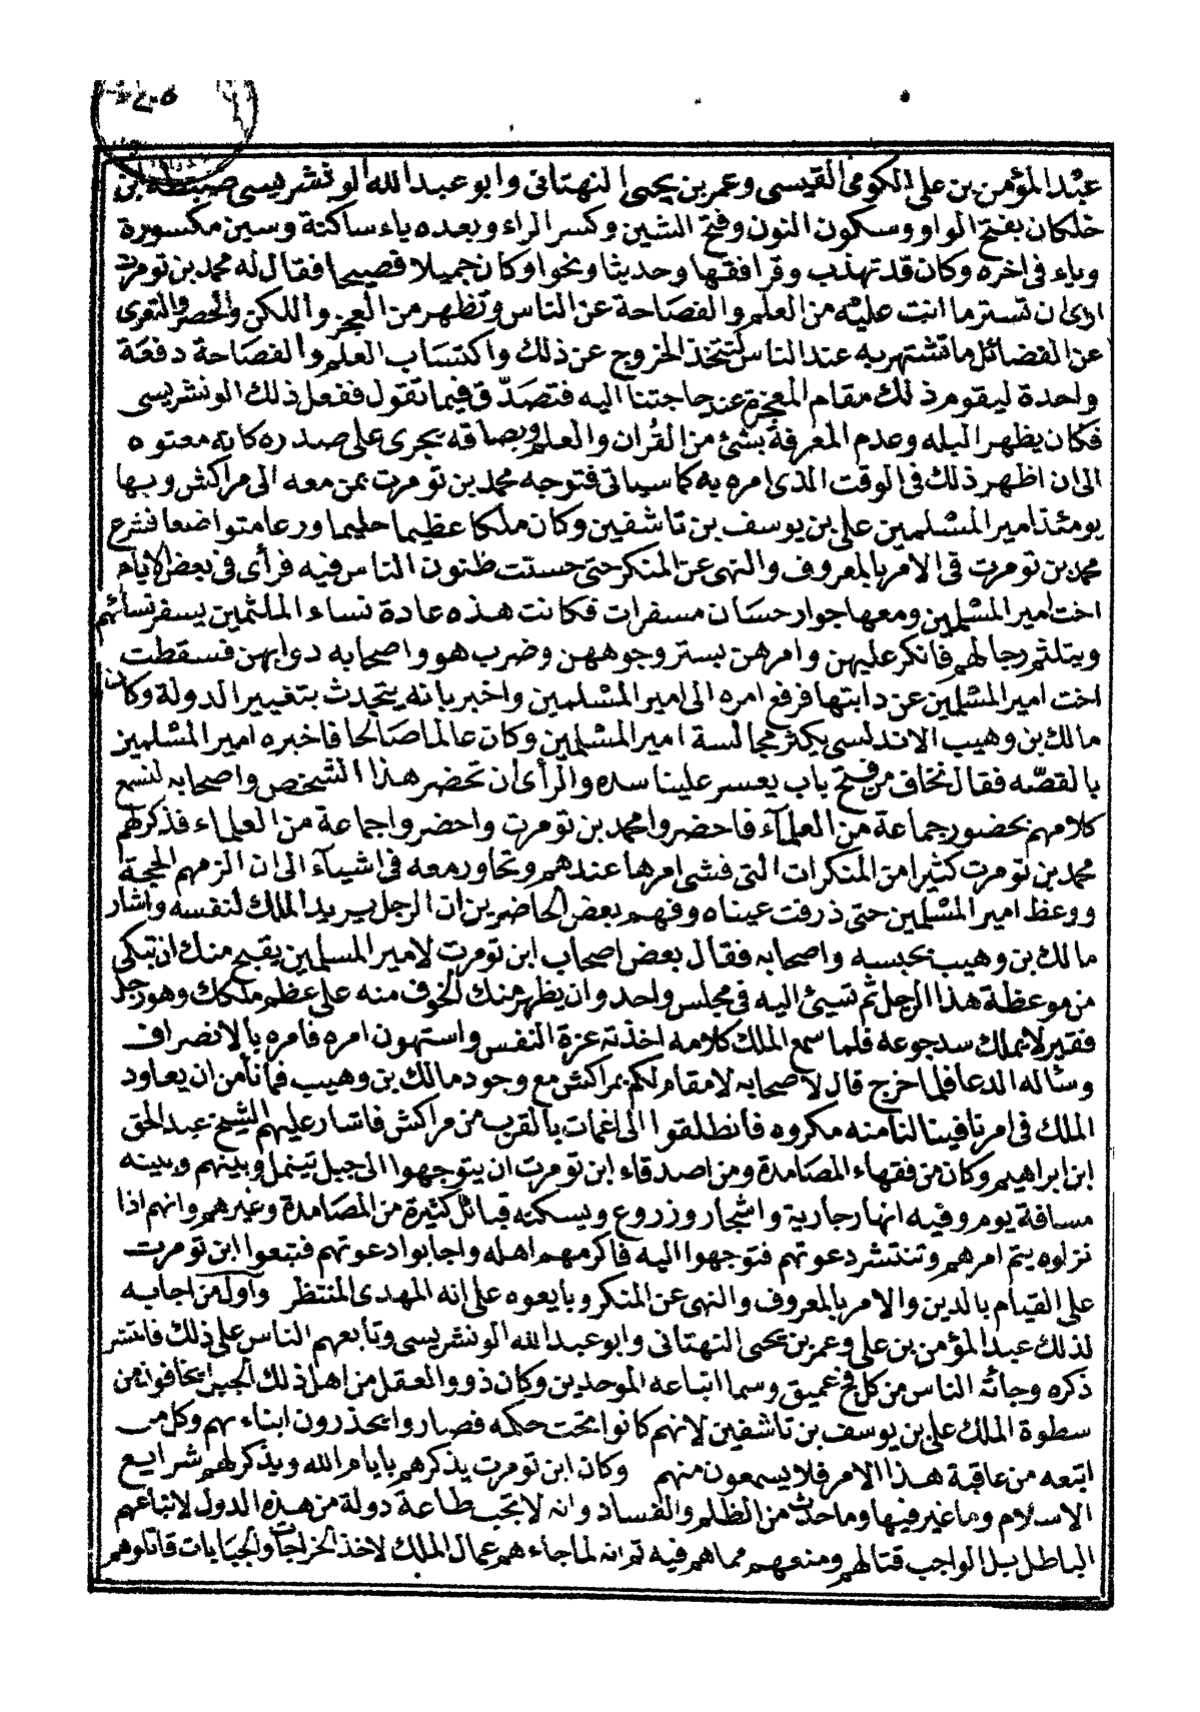 عبد المؤمن بن على الكومى القيسى وعمر بن يحيى النهتانى وابو عبد الله الونشريسى ضبطه ابن
خلكان بفتح الواو وسكون النون وفتح الشين وكسر الراء وبعده ياء ساكنة وسين مكسورة
وياء فى اخره وكان قد تهذب وقرا فقها وحديثا ونحوا وكان جميلا فصيحا فقال له محمد بن تومرت
ارى ان تستر ما انت عليه من العلم والفصاحة عن الناس وتظهر من العجز واللكن والحصر والتعرى
عن الفضائل ما تشتهر به عند الناس لتتخذ الخروج عن ذلك واكتساب العلم والفصاحة دفعة
واحدة ليقوم ذلك مقام المعجزة عند حاجتنا اليه فتصدق فيما تقول ففعل ذلك الونشريسى
فكان يظهر البله وعدم المعرفة بشئ من القران والعلم وبصاقه يجرى على صدره كانه معتوه
الى ان اظهر ذلك فى الوقت الذى امره به كما سياتى فتوجه محمد بن تومرت بمن معه الى مراكش وبها
يومئذ امير المسلمين على بن يوسف بن تاشفين وكان ملكا عظيما حليما ورعا متواضعا فشرع
محمد بن تومرت فى الامر بالمعروف والنهى عن المنكر حتى حسنت ظنون الناس فيه فرأى فى بعض الايام
اخت امير المسلمين ومعها جوار حسان مسفرات فكانت هذه عادة نساء الملثمين يسفر نسائهم
ويتلثم رجالهم فانكر عليهن وامرهن بستر وجوههن وضرب هو واصحابه دوابهن فسقطت
اخت امير المسلمين عن دابتها فرفع امره الى امير المسلمين واخبر بانه يتحدث بتغيير الدولة وكان
مالك بن وهيب الاندلسى يكثر مجالسة امير المسلمين وكان عالما صالحا فاخبره امير المسلمين
بالقصه فقال نخاف من فتح باب يعسر علينا سده والرأى ان تحضر هذا الشخص واصحابه لنسمع
كلامهم بحضور جماعة من العلمآء فاحضروا محمد بن تومرت واحضروا جماعة من العلماء فذكر لهم
محمد بن تومرت كثيرا من المنكرات التى فشى امرها عندهم وتحاور معه فى اشيآء الى ان الزمهم الحجة
ووعظ امير المسلمين حتى ذرفت عيناه وفهم بعض الحاضرين ان الرجل يريد الملك لنفسه واشار
مالك بن وهيب بحبسه واصحابه فقال بعض اصحاب ابن تومرت لامير المسلمين يقبح منك ان تبكى
من موعظة هذا الرجل ثم تسيئ اليه فى مجلس واحد وان يظهر منك الخوف منه على عظم ملكك وهو رجل
فقير لا يملك سد جوعه فلما سمع الملك كلامه اخذته عزة النفس واستهون امره فامره بالانصراف
وسئاله الدعا فلما خرج قال لاصحابه لا مقام لكم بمراكش مع وجود مالك بن وهيب فما نأمن ان يعاود
الملك فى امرنا فينالنا منه مكروه فانطلقوا الى اغمات بالقرب من مراكش فاشار عليهم الشيخ عبد الحق
ابن ابراهيم وكان من فقهاء المصامدة ومن اصدقاء ابن تومرت ان يتوجهوا الى جبل تينمل وبينهم وبينه
مسافة يوم وفيه انهار جارية واشجار وزروع ويسكنه قبائل كثيرة من المصامدة وغيرهم وانهم اذا
نزلوه يتم امرهم وتنتشر دعوتهم فتوجهوا اليه فاكرمهم اهله واجابوا دعوتهم فتبعوا ابن تومرت
على القيام بالدين والامر بالمعروف والنهى عن المنكر وبايعوه على انه المهدى المنتظر واول من اجابه
لذلك عبد المؤمن بن على وعمر بن يحيى النهتانى وابو عبد الله الونشريسى وتابعهم الناس على ذلك فانتشر
ذكره وجائه الناس من كل فج عميق وسما اتباعه الموحدين وكان ذوو العقل من اهل ذلك الجبل يخافون من
سطوة الملك على بن يوسف بن تاشفين لانهم كانوا تحت حكمه فصاروا يحذرون ابناءهم وكل من
اتبعه من عاقبة هذا الامر فلا يسمعون منهم وكان ابن تومرت يذكرهم بايام الله ويذكر لهم شرايع
الاسلام وما غير فيها وما حدث من الظلم والفساد وانه لا تجب طاعة دولة من هذه الدول لاتباعهم
الباطل بل الواجب قتالهم ومنعهم مما هم فيه ثم انه لما جاءهم عمال الملك لاخذ الخراجات والجبايات قاتلوهم